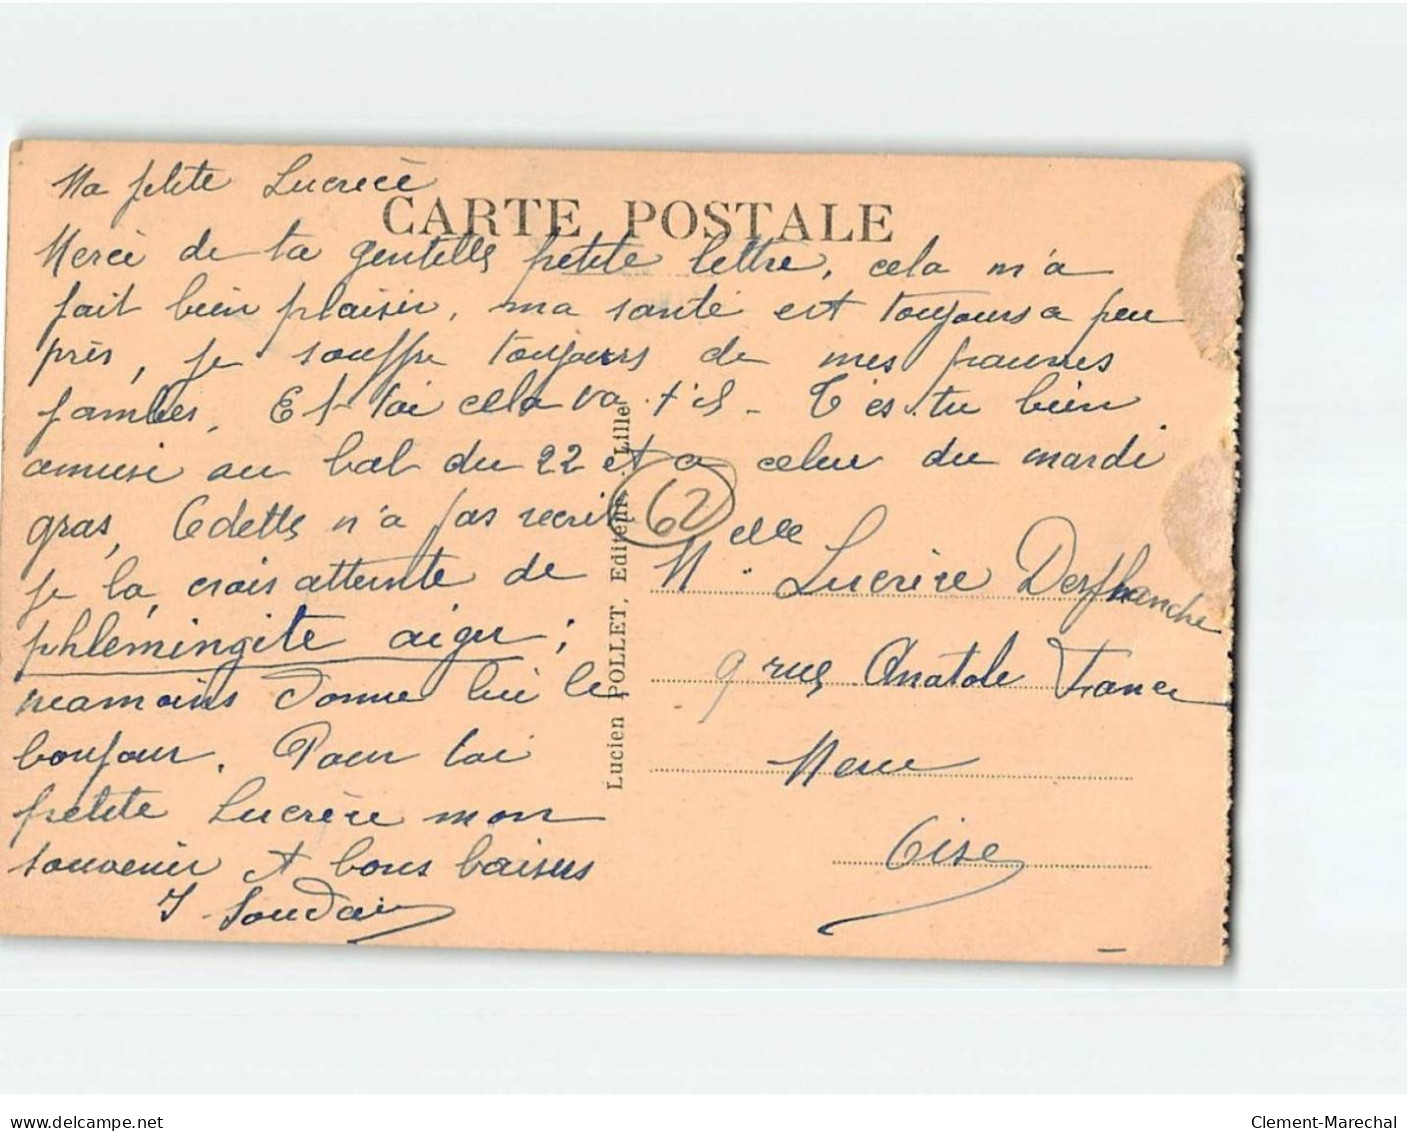 Ma petite Lucrèce
CARTE POSTALE
Merci de ta gentille petite lettre, cela m'a
fait bien plaisir, ma santé est toujours a peu
près, je souffre toujours de mes pauvres
jambes, Et toi cela va t'il - T'es-tu bien
amusé au bal du 22 et a celui du mardi
gras, Odette n'a pas recrit
je la crois atteinte de
phlémingite aigu ;
neamoins donne lui le
bonjour. Pour toi
petite Lucrèce mon
souvenir et bons baisers
Y. Soudain
Lucien POLLET, Editeur, Lille
62
Melle Lucrèce Desfhanche
9 rue Anatole France
Meru
Oise
www.delcampe.net
Clement-Marechal